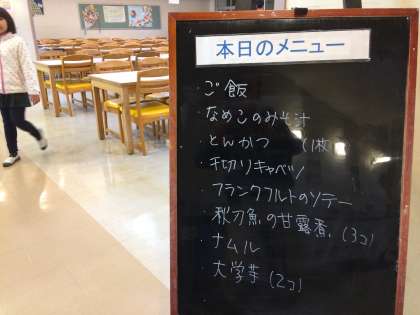 本日のメニュー
・ご飯
・なめこのみそ汁
・とんかつ (1枚)
・千切りキャベツ
・フランクフルトのソテー
・秋刀魚の甘露煮 (3コ)
・ナムル
・大学芋 (2コ)